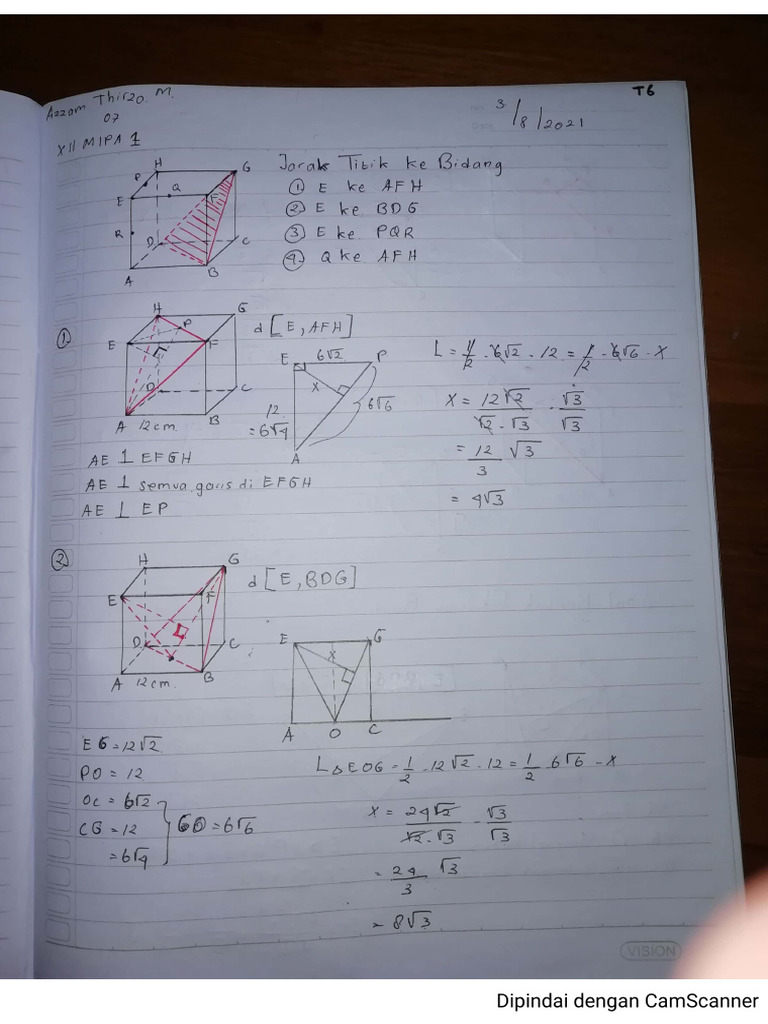 T6
Azzam Thirzo. M.
07
XII MIPA 1
3/8/2021
H G
P Q
E F
R D C
A B
Jarak Titik ke Bidang
① E ke AFH
② E ke BDG
③ E ke PQR
④ Q ke AFH
①
H G
P
E F
D C
A 12 cm. B
d [E, AFH]
E 6√2 P
X
12 = 6√4
6√6
A
L = 1/2 · 6√2 · 12 = 1/2 · 6√6 · X
X = 12√2 / √2 · √3 · √3/√3
= 12/3 √3
= 4√3
AE ⊥ EFGH
AE ⊥ semua garis di EFGH
AE ⊥ EP
②
H G
E F
D C
A 12 cm. B
d [E, BDG]
E G
X
A O C
EG = 12√2
PO = 12
OC = 6√2
CG = 12
= 6√4
GO = 6√6
L△EOG = 1/2 · 12√2 · 12 = 1/2 · 6√6 · X
X = 24√2 / √2 · √3 · √3/√3
= 24/3 √3
= 8√3
VISION
Dipindai dengan CamScanner